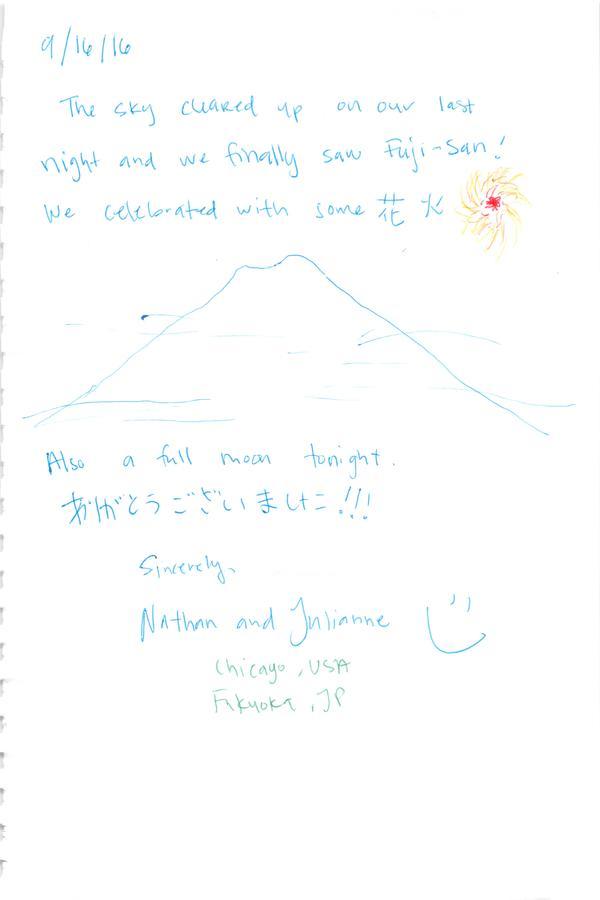 9/16/16
The sky cleared up on our last
night and we finally saw Fuji-san!
We celebrated with some 花火
Also a full moon tonight.
ありがとうございました!!!
Sincerely,
Nathan and Julianne
Chicago, USA
Fukuoka, JP